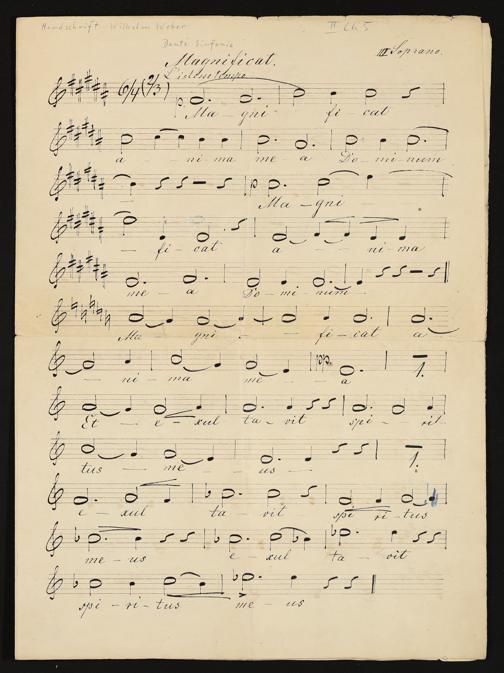 Handschrift Wilhelm Weber
II Ch 5
Dante Sinfonie
Magnificat.
III Soprano.
L'istesso tempo
6/4 (2/3)
p.
Ma - gni - fi - cat
a - ni ma me - a Do - mi - num
p
Ma - gni
- fi - cat a - ni - ma
me - a Do - mi - num -
Ma - gni - fi - cat a
pp.
1.
- ni - ma me - a
Et e - xul ta - vit spi - rit
1.
tus - me - us -
e - xul ta - vit spi - ri - tus
me - us e - xul ta - vit
spi - ri - tus me - us